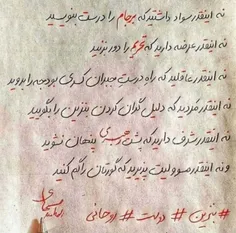 نه اینقدر سواد داشتید که برجام را درست بنویسید
نه اینقدر عرضه دارید که تحریم را دور بزنید
نه اینقدر عاقلید که راه درست جبران کسری بودجه را بروید
نه اینقدر مردید که دلیل گران کردن بنزین را بگویید
نه اینقدر شرف دارید که پشت پنهان نشوید
و نه اینقدر مسوولیت پذیرید که گورتان را گم کنید
# بنزین # دولت # روحانی